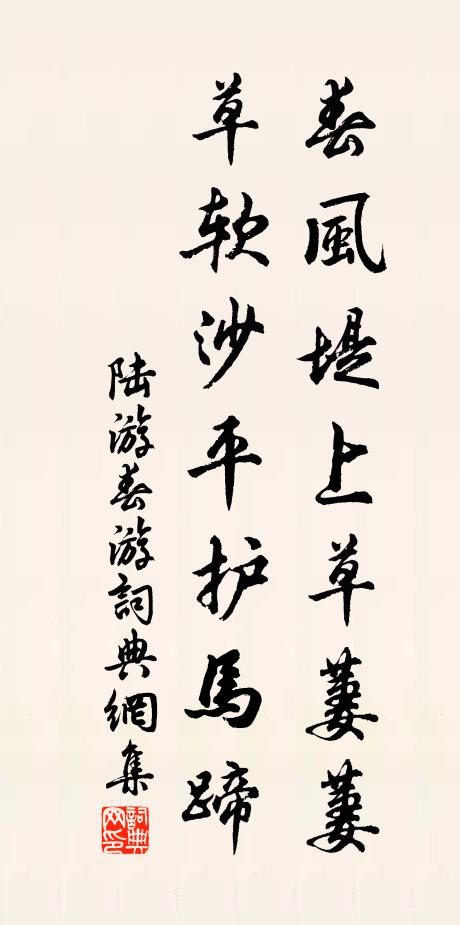 春風堤上草萋萋
草软沙平护馬蹄
陆游春游詞典網集
詞典网印